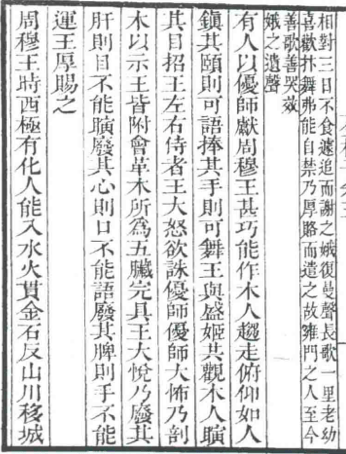 相對三日不食遽追而謝之娥復曼聲長歌一里老幼
喜歡抃舞弗能自禁乃厚賂而遣之故雍門之人至今
善歌善哭效
娥之遺聲
有人以優師獻周穆王甚巧能作木人趨走俯仰如人
鎮其頤則可語捧其手則可舞王與盛姬共觀木人瞚
其目招王左右侍者王大怒欲誅優師優師大怖乃剖
木以示王皆附會革木所為五臟完具王大悅乃廢其
肝則目不能瞚廢其心則口不能語廢其脾則手不能
運王厚賜之
周穆王時西極有化人能入水火貫金石反山川移城